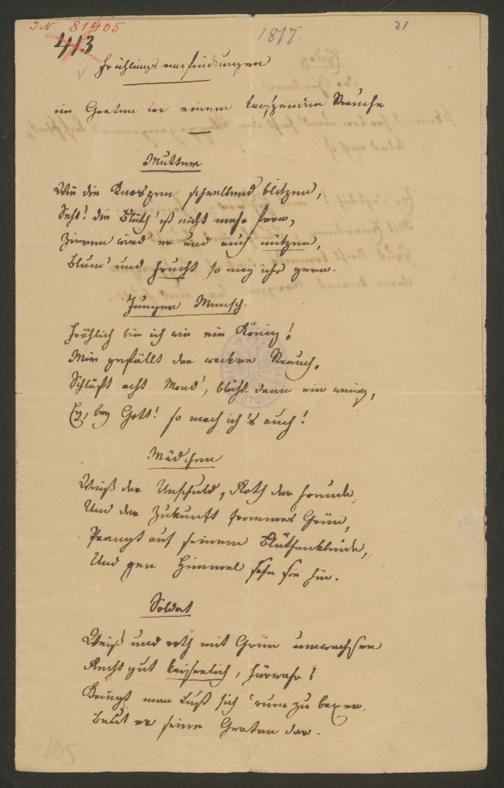 IN 81405
413
1817.
31
Frühlingsempfindungen
im Garten vor einem knospenden Strauche
Mutter
Wie die Knospen schwellend blitzen,
Seht! die Blüth' ist nicht mehr fern,
Zieren wird er und auch nützen,
Blum' und Frucht so mag ichs gern.
Junger Mensch
Fröhlich bin ich wie ein König!
Mir gefällt der wackre Strauch,
Schläft acht Mond', blüht dann ein wenig,
Ey, bey Gott! so mach ich's auch!
Mädchen
Weiß der Unschuld, Roth der Freude
Und der Zukunft frommes Grün,
Prangt auf seinem Blüthenkleide,
Und gen Himmel sehn sie hin.
Soldat
Weiß und roth mit Grün umwachsen
Recht gut kaiserlich, fürwahr!
Kriegt man Lust sich 'rum zu
Beut er seine Gerten dar.
105